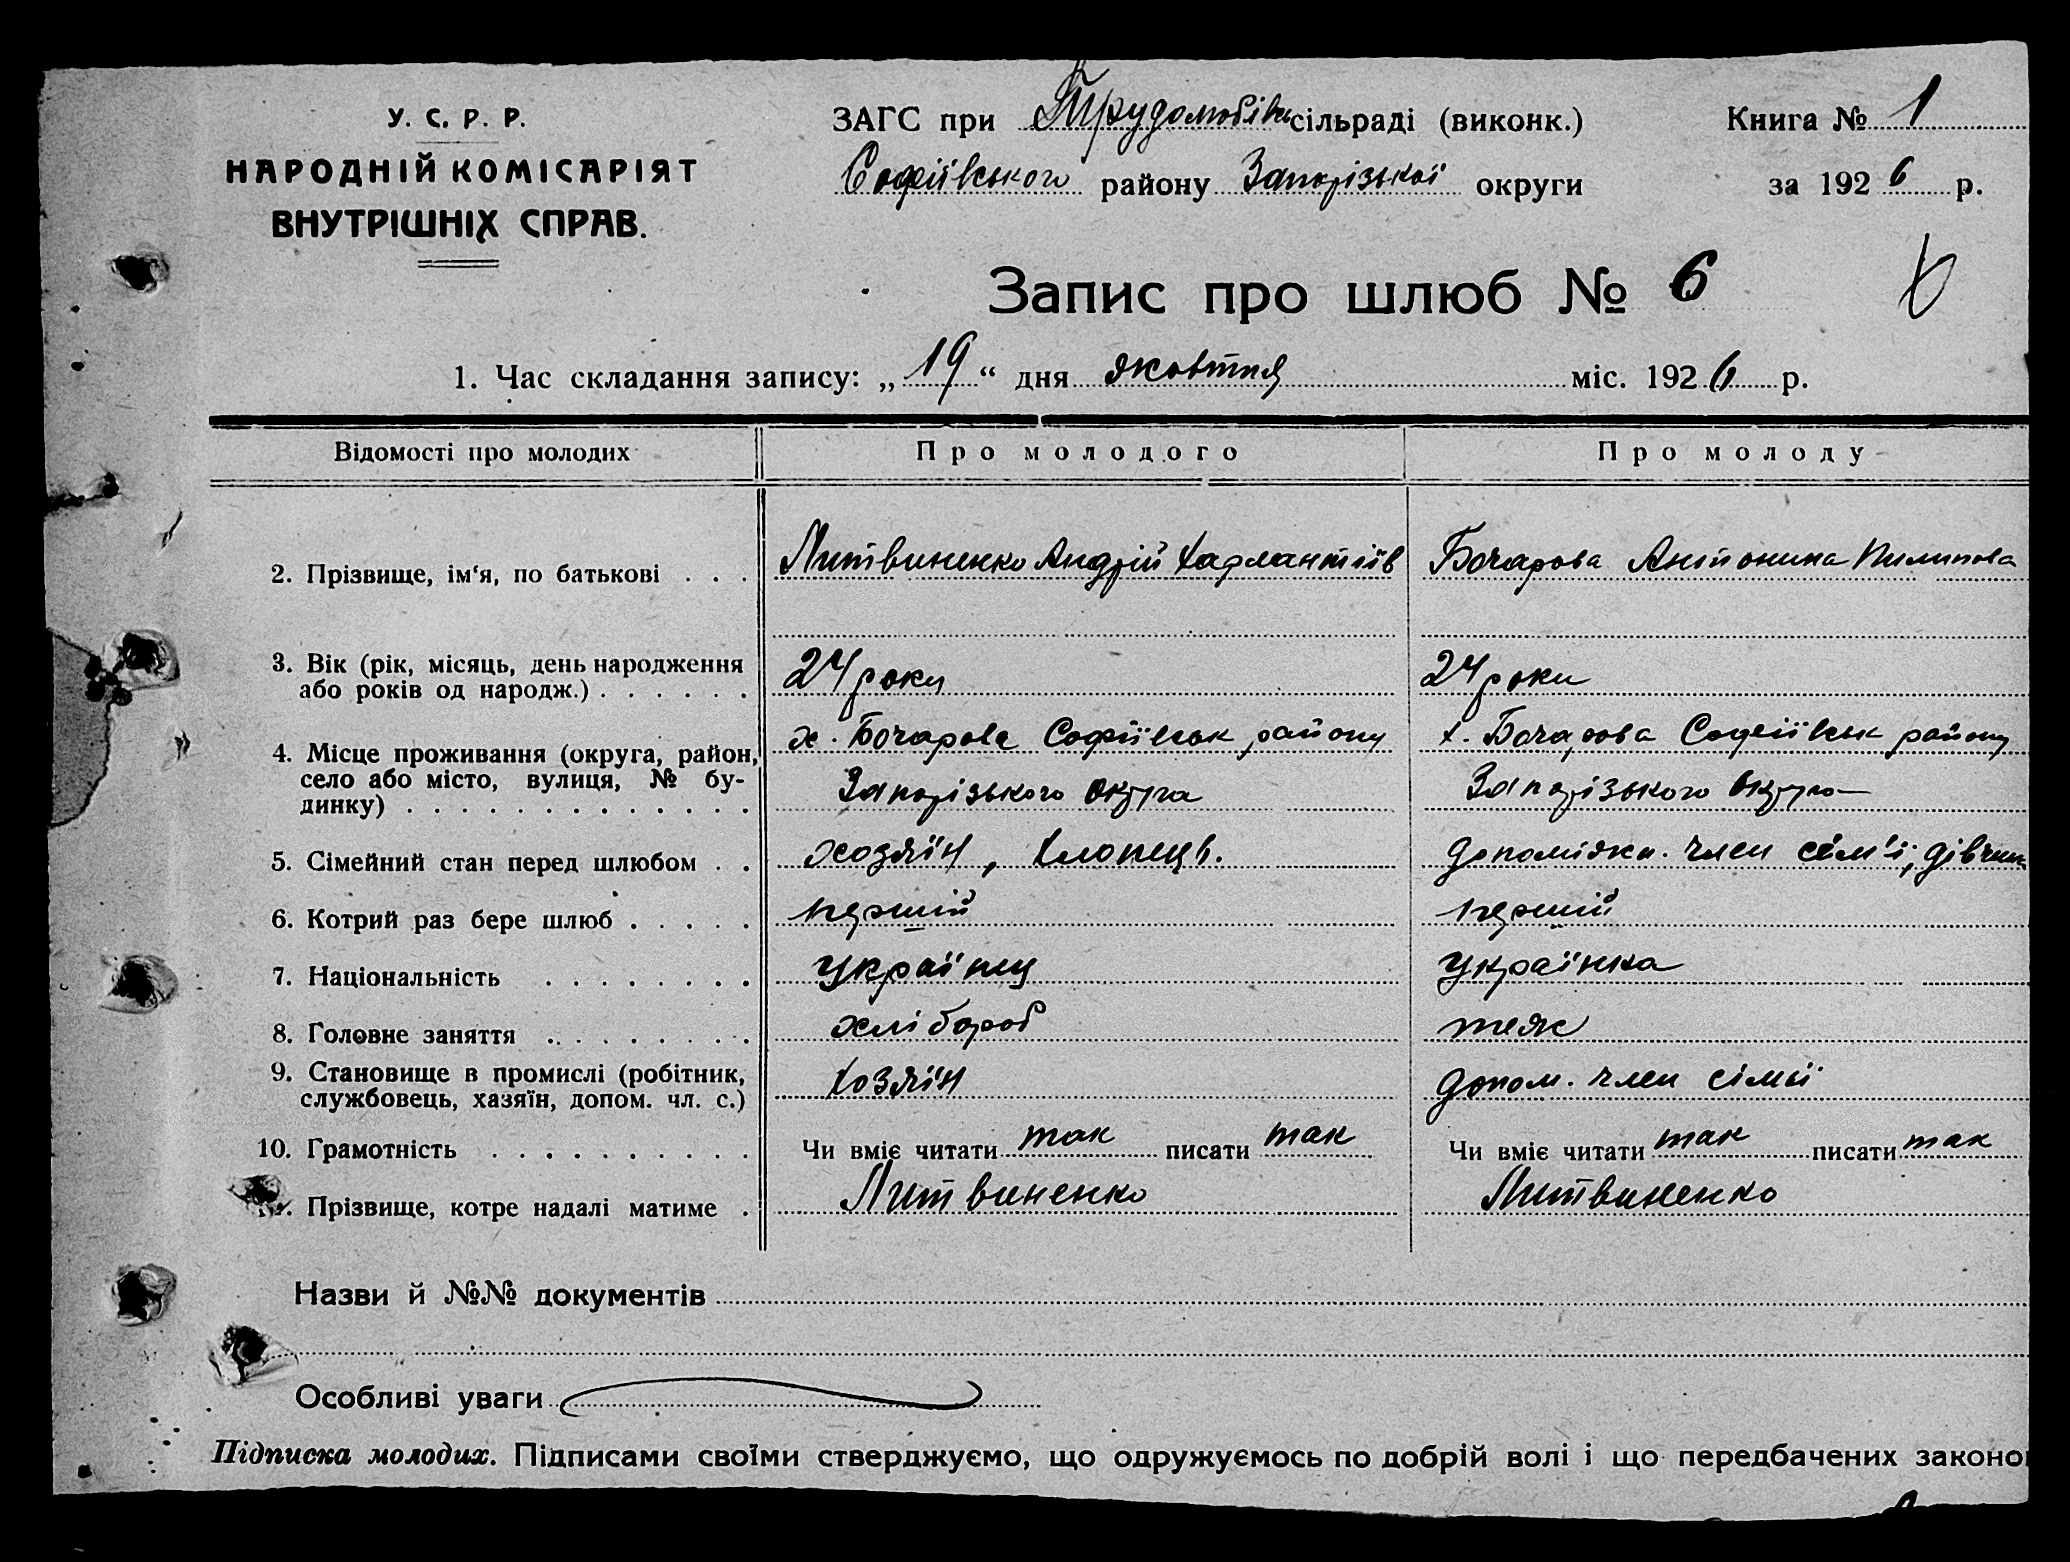 У. С. Р. Р.
НАРОДНІЙ КОМІСАРІЯТ
ВНУТРІШНІХ СПРАВ.
ЗАГС при Трудолюбівсь сільраді (виконк.)
Софіївського району Запорізької округи
Книга № 1
за 1926 р.
Запис про шлюб № 6
6
1. Час складання запису: „19“ дня жовтня міс. 1926 р.
Відомості про молодих Про молодого Про молоду
2. Прізвище, ім‘я, по батькові . . . Литвиненко Андрій Харлантіїв Бочарова Антонина Пилипова
3. Вік (рік, місяць, день народження
або років од народж.) . . . . . . 24 роки 24 роки
4. Місце проживання (округа, район, х. Бочарова Софіївськ району х. Бочарова Софіївськ району
село або місто, вулиця, № бу-
динку) . . . . . . . . . . . . . Запорізького округа Запорізького округа
5. Сімейний стан перед шлюбом . . хозяїн, хлопець. допоміжн. член сем'ї, дівчин
6. Котрий раз бере шлюб . . . . . перший перший
7. Національність . . . . . . . . українц українка
8. Головне заняття . . . . . . . . хлібороб теж
9. Становище в промислі (робітник,
службовець, хазяїн, допом. чл. с.) хозяїн допом. член сімьї
10. Грамотність . . . . . . . . . . Чи вміє читати так писати так Чи вміє читати так писати так
Прізвище, котре надалі матиме . Литвиненко Литвиненко
Назви й №№ документів
Особливі уваги
Підписка молодих. Підписами своїми стверджуємо, що одружуємось по добрій волі і що передбачених законо